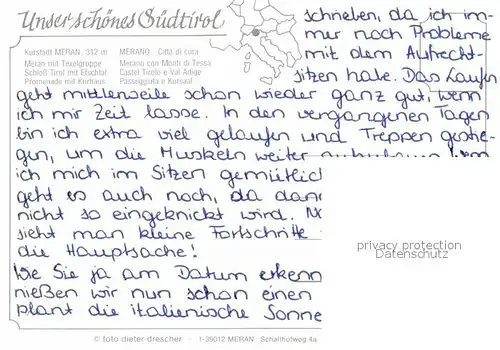 Unser schönes Südtirol
Kurstadt MERAN, 312 m
Meran mit Texelgruppe
Schloß Tirol mit Etschtal
Promenade mit Kurhaus
MERANO Città di cura
Merano con Monti di Tessa
Castel Tirolo e Val Adige
Passeggiata e Kursaal
schrieben, da ich im-
mer noch Probleme
mit dem Aufrecht-
sitzen habe. Das Laufen
geht mittlerweile schon wieder ganz gut, wenn
ich mir Zeit lasse. In den vergangenen Tagen
bin ich extra viel gelaufen und Treppen gestie-
gen, um die Muskeln weiter
ich mich im Sitzen gemütlich
geht es auch noch, da dann
nicht so eingeknickt wird.
sieht man kleine Fortschritte
die Hauptsache!
Wie Sie ja am Datum erkenn
nießen wir nun schon einen
plant die italienische Sonne
privacy protection
Datenschutz
© foto dieter drescher - I-39012 MERAN Schallhofweg 4a